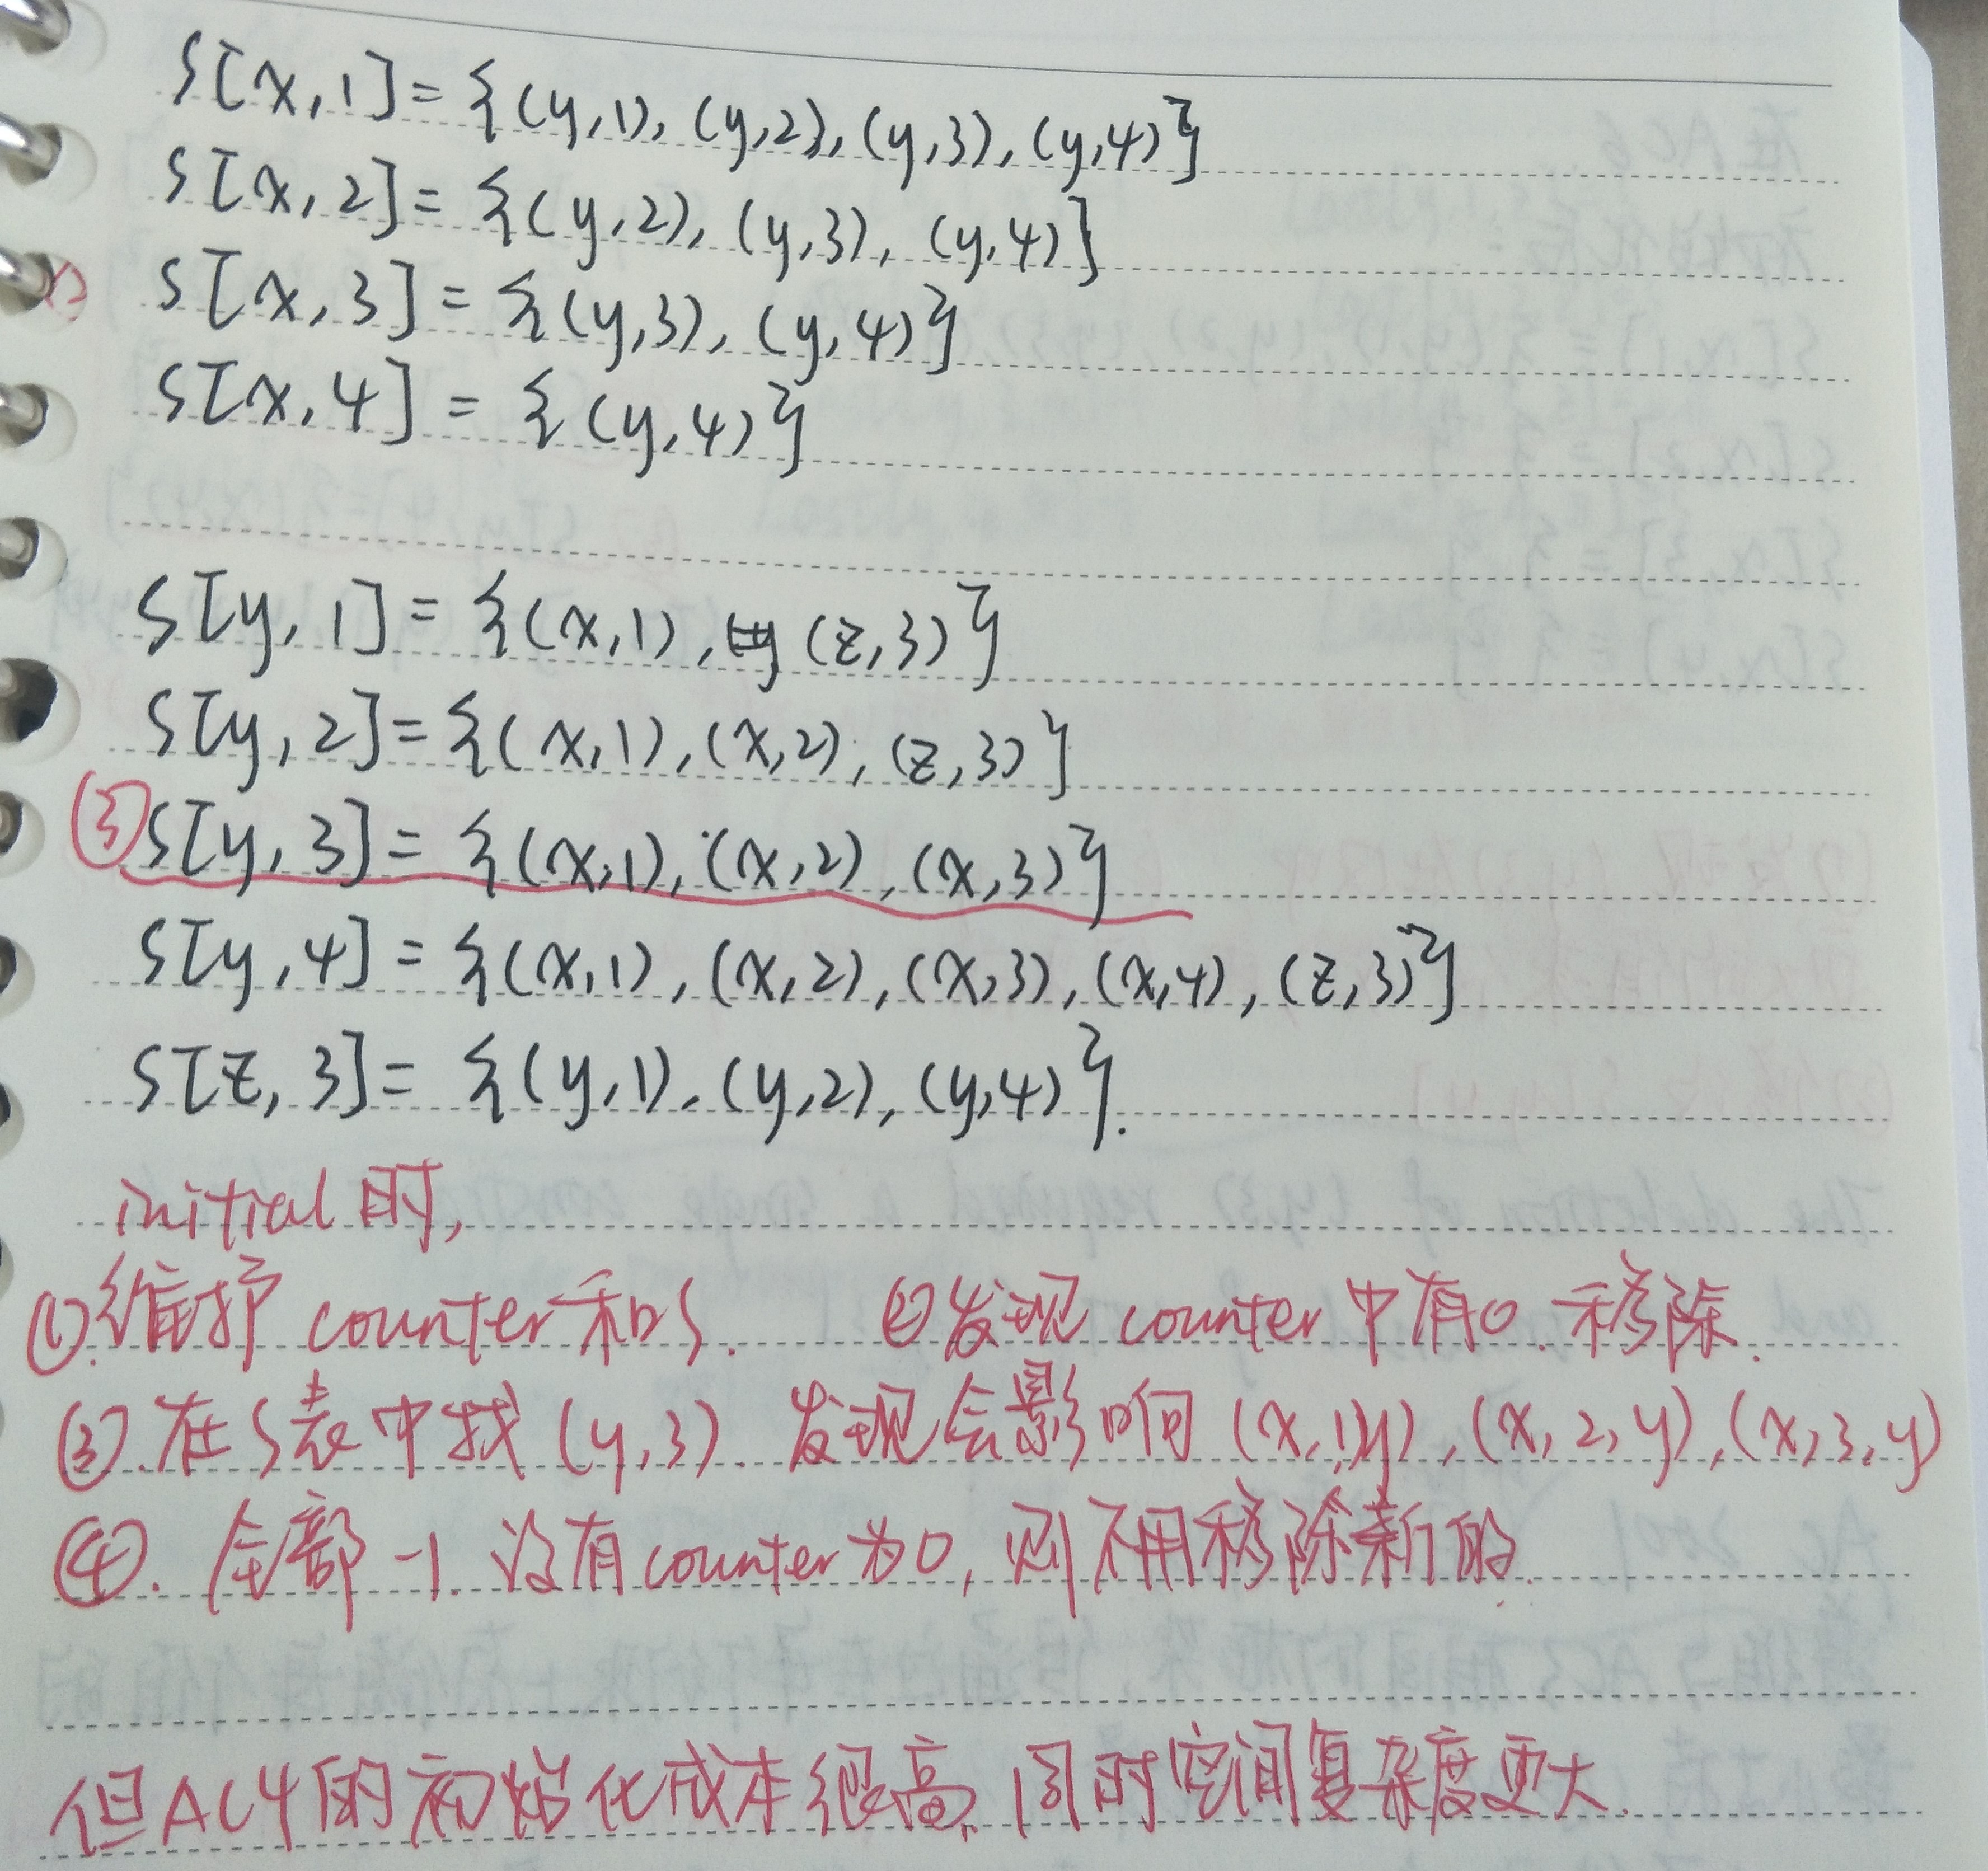 S[x,1]={(y,1),(y,2),(y,3),(y,4)}
S[x,2]={(y,2),(y,3),(y,4)]
S[x,3]={(y,3),(y,4)}
S[x,4]={(y,4)}
S[y,1]={(x,1),(z,3)}
S[y,2]={(x,1),(x,2),(z,3)}
③S[y,3]={(x,1),(x,2),(x,3)}
S[y,4]={(x,1),(x,2),(x,3),(x,4),(z,3)}
S[z,3]={(y,1).(y,2),(y,4)}.
initial时,
①.维护counter和S. ②发现counter中有0.移除.
③.在S表中找(y,3).发现会影响(x,1,y),(x,2,y),(x,3,y)
④.全部-1.没有counter为0,则不用移除新的.
但AC4的初始化成本很高,同时空间复杂度更大.